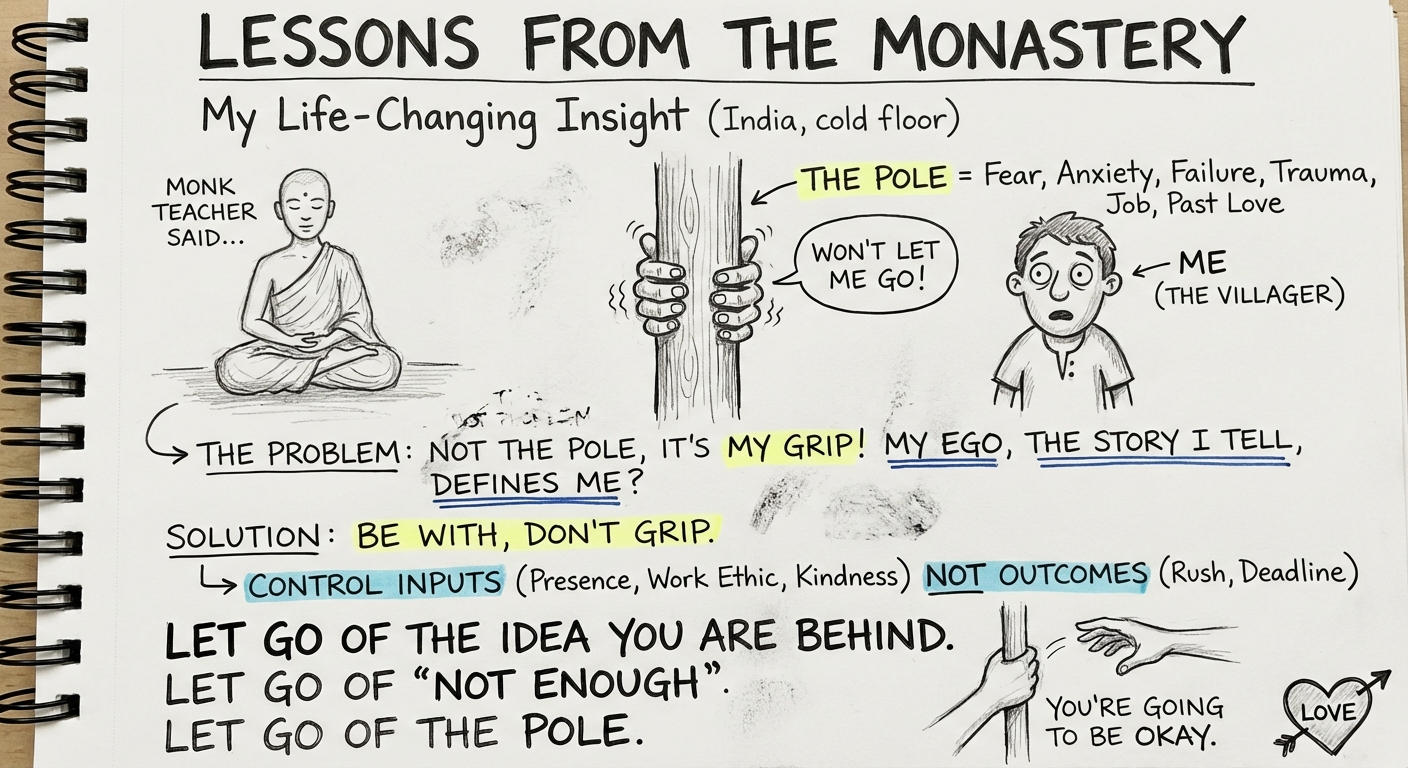 LESSONS FROM THE MONASTERY
My Life-Changing Insight (India, cold floor)
MONK
TEACHER
SAID...
THE POLE = Fear, Anxiety, Failure, Trauma,
Job, Past Love
WON'T LET
ME GO!
ME
(THE VILLAGER)
THE PROBLEM: NOT THE POLE, IT'S MY GRIP! MY EGO, THE STORY I TELL,
DEFINES ME?
SOLUTION: BE WITH, DON'T GRIP.
CONTROL INPUTS (Presence, Work Ethic, Kindness) NOT OUTCOMES (Rush, Deadline)
LET GO OF THE IDEA YOU ARE BEHIND.
LET GO OF “NOT ENOUGH”.
LET GO OF THE POLE.
YOU'RE GOING
TO BE OKAY.
LOVE